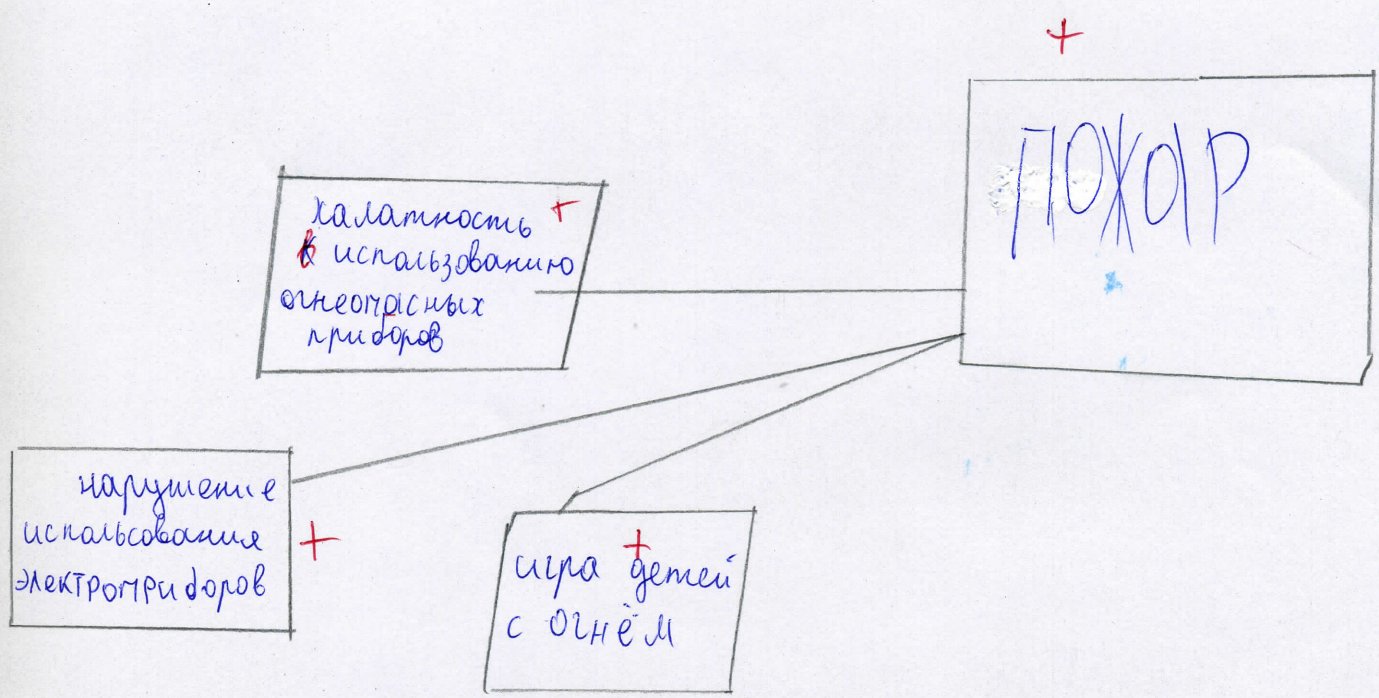 ПОЖАР
халатность
в использованию
огнеопасных
приборов
нарушение
испольсования
электроприборов
игра детей
с огнём